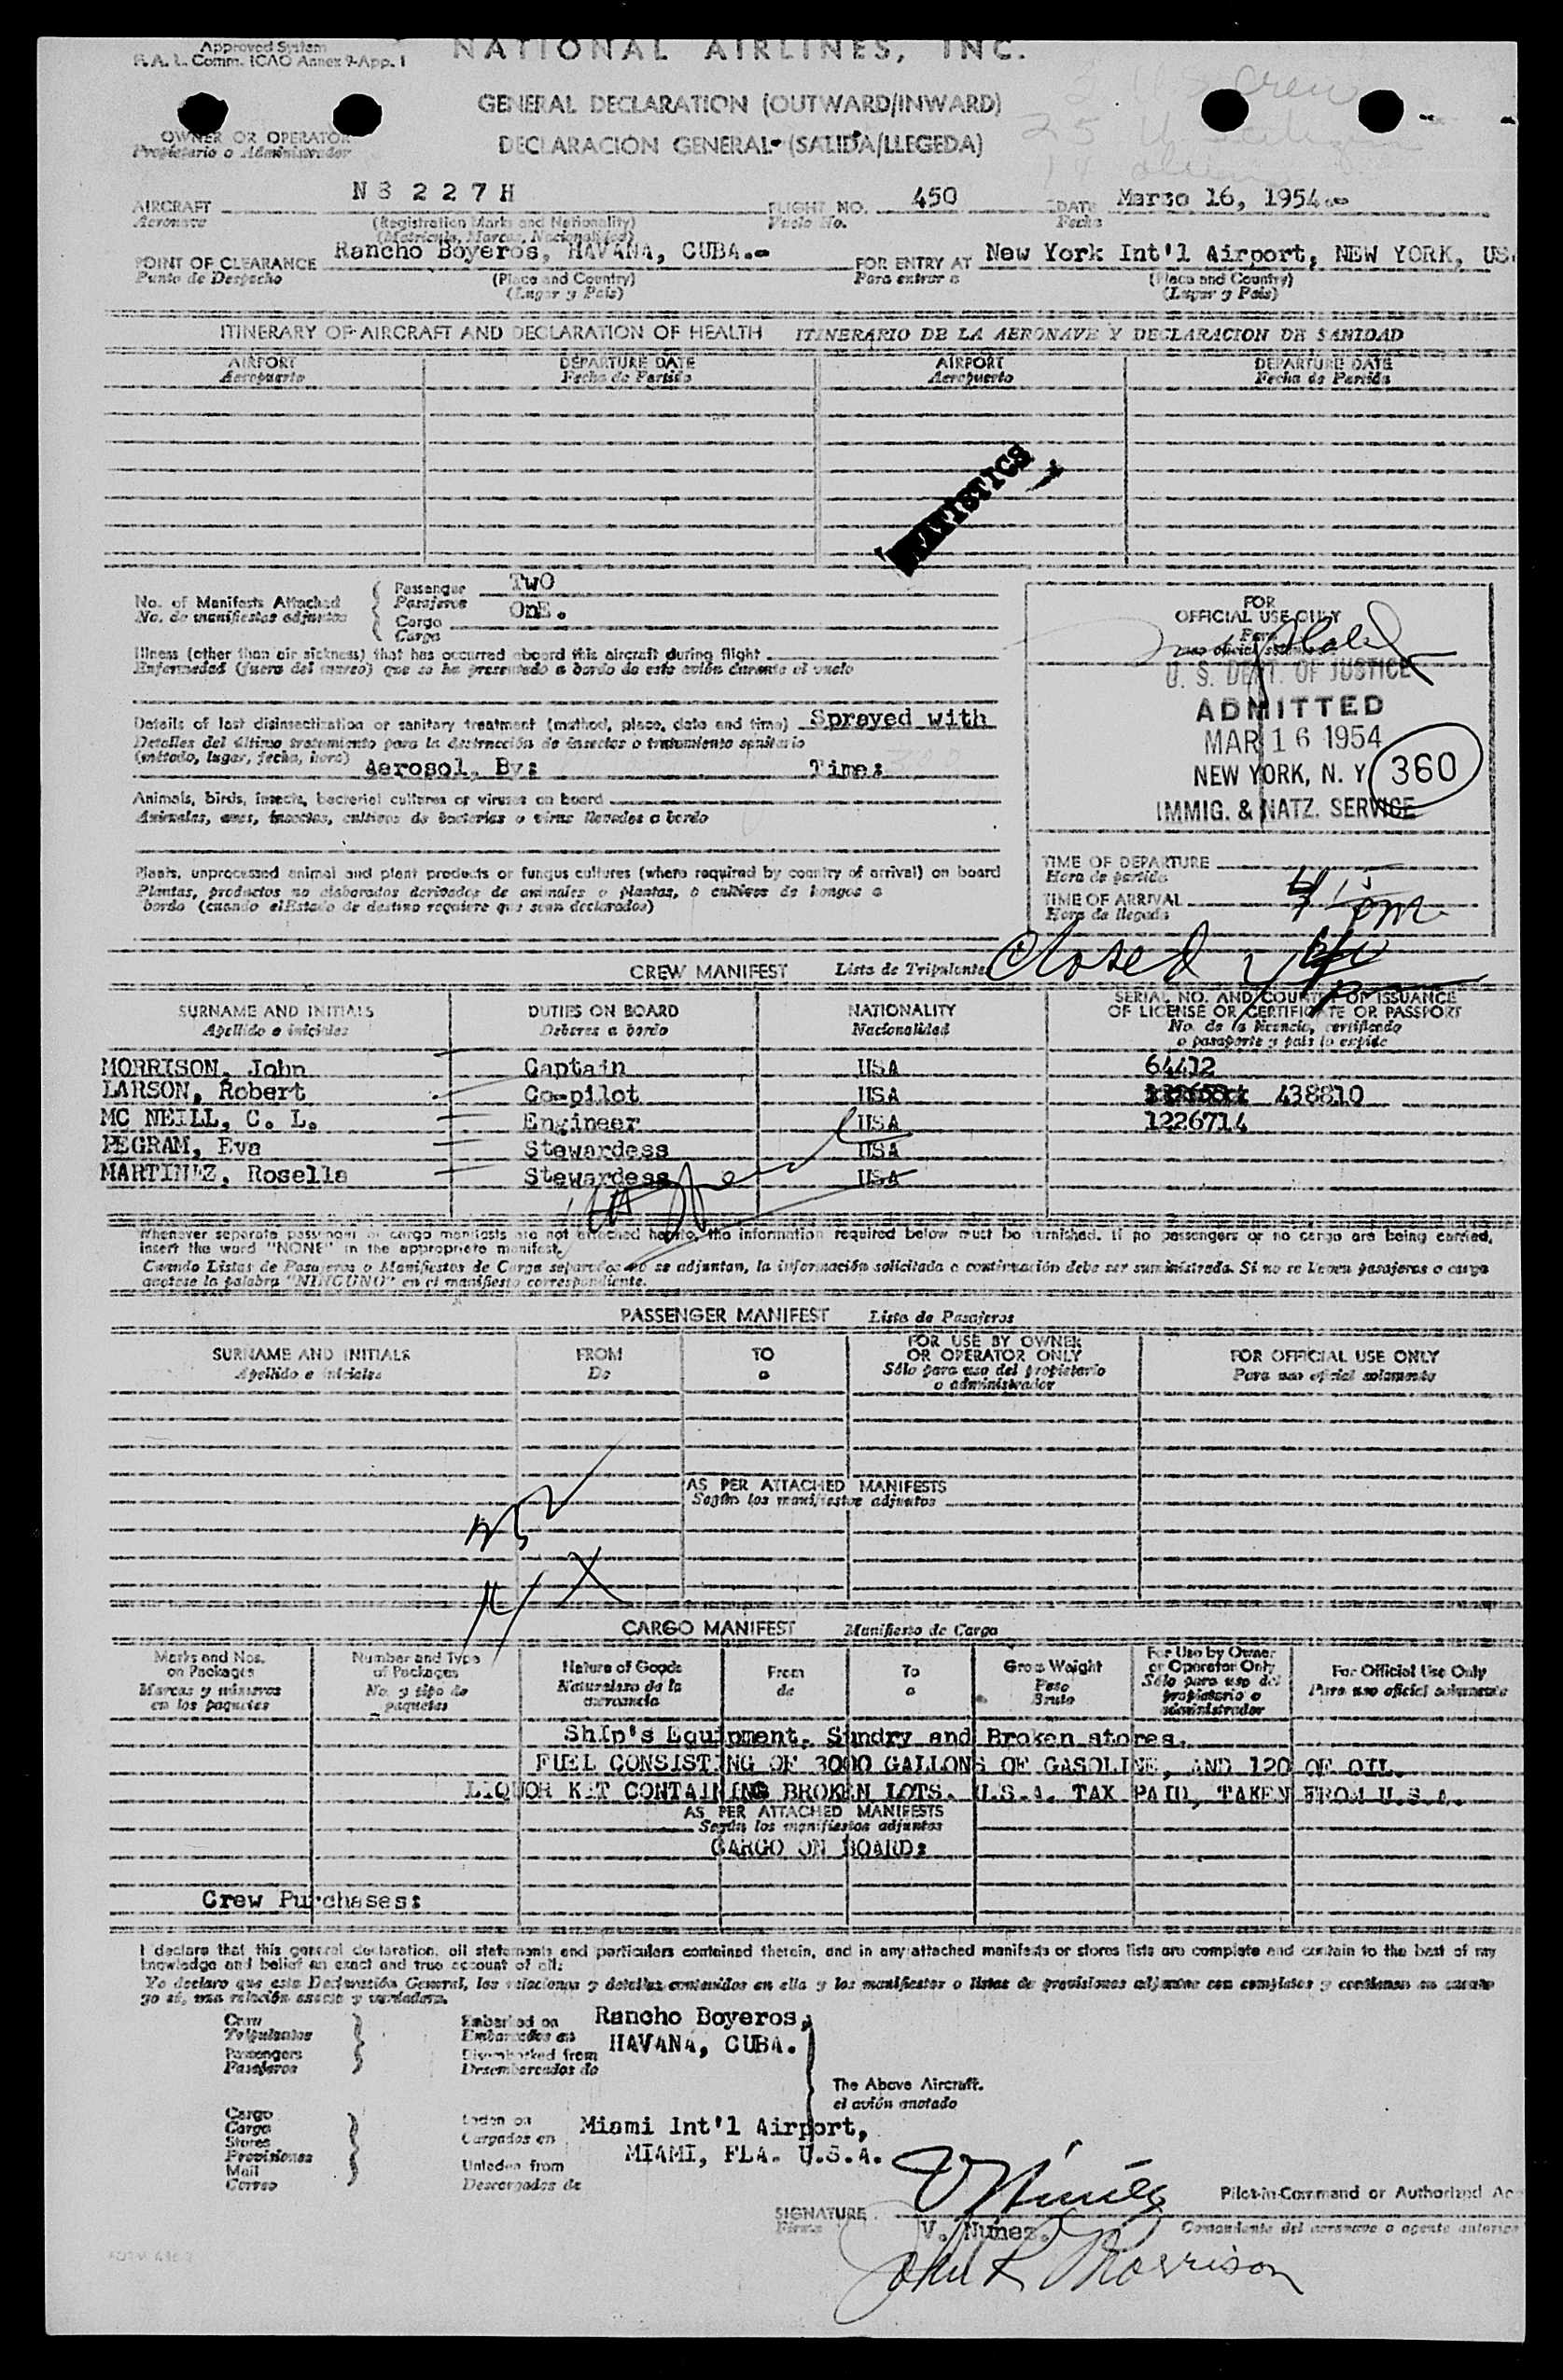 Approved System
F.A.L. Comm. ICAO Annex 9-App. 1
NATIONAL AIRLINES, INC.
GENERAL DECLARATION (OUTWARD/INWARD)
DECLARACION GENERAL (SALIDA/LLEGEDA)
OWNER OR OPERATOR
Propietario o Administrador
AIRCRAFT N 8 2 2 7 H FLIGHT NO. 450 DATE Marzo 16, 1954.-
Aeronave (Registration Marks and Nationality) Vuelo No. Fecha
(Matricula, Marcas, Nacionalidad)
POINT OF CLEARANCE Rancho Boyeros, HAVANA, CUBA.- FOR ENTRY AT New York Int'l Airport, NEW YORK, US
Punto de Despacho (Place and Country) Para entrar a (Place and Country)
(Lugar y Pais) (Lugar y Pais)
ITINERARY OF AIRCRAFT AND DECLARATION OF HEALTH ITINERARIO DE LA AERONAVE Y DECLARACION DE SANIDAD
AIRPORT DEPARTURE DATE AIRPORT DEPARTURE DATE
Aeropuerto Fecha de Partida Aeropuerto Fecha de Partida
STATISTICS
No. of Manifests Attached Passenger TwO
No. de manifiestos adjuntos Pasajeros
Cargo OnE.
Carga
Illness (other than air sickness) that has occurred aboard this aircraft during flight
Enfermedad (fuera del mareo) que se ha presentado a bordo de este avión durante el vuelo
Details of last disinsectization or sanitary treatment (method, place, date and time) Sprayed with
Detalles del último tratamiento para la destrucción de insectos o tratamiento sanitario
(método, lugar, fecha, hora) Aerosol, By: Time:
Animals, birds, insects, bacterial cultures or viruses on board
Animales, aves, insectos, cultivos de bacterias o virus llevados a bordo
Plants, unprocessed animal and plant products or fungus cultures (where required by country of arrival) on board
Plantas, productos no elaborados derivados de animales o plantas, o cultivos de hongos a
bordo (cuando el Estado de destino requiere que sean declarados)
FOR
OFFICIAL USE ONLY
Para
uso oficial solamente
U. S. DEPT. OF JUSTICE
ADMITTED
MAR 16 1954
NEW YORK, N. Y. 360
IMMIG. & NATZ. SERVICE
TIME OF DEPARTURE
Hora de partida
TIME OF ARRIVAL
Hora de llegada
Closed
CREW MANIFEST Lista de Tripulantes
SURNAME AND INITIALS DUTIES ON BOARD NATIONALITY SERIAL NO. AND COUNTRY OF ISSUANCE
Apellido e iniciales Deberes a bordo Nacionalidad OF LICENSE OR CERTIFICATE OR PASSPORT
No. de la licencia, certificado
o pasaporte y pais lo expide
MORRISON, John Captain USA 64412
LARSON, Robert Co-pilot USA 438810
MC NEILL, C. L. Engineer USA 1226714
PEGRAM, Eva Stewardess USA
MARTINEZ, Rosella Stewardess USA
Whenever separate passenger or cargo manifests are not attached hereto, the information required below must be furnished. If no passengers or no cargo are being carried,
insert the word "NONE" in the appropriate manifest.
Cuando Listas de Pasajeros o Manifiestos de Carga separados no se adjuntan, la información solicitada a continuación debe ser suministrada. Si no se llevan pasajeros o carga
anotese la palabra "NINGUNO" en el manifiesto correspondiente.
PASSENGER MANIFEST Lista de Pasajeros
SURNAME AND INITIALS FROM TO FOR USE BY OWNER OR OPERATOR ONLY FOR OFFICIAL USE ONLY
Apellido e iniciales De a Sólo para uso del propietario o administrador Para uso oficial solamente
AS PER ATTACHED MANIFESTS
Según los manifiestos adjuntos
CARGO MANIFEST Manifiesto de Carga
Marks and Nos. on Packages Number and Type of Packages Nature of Goods From To Gross Weight For Use by Owner or Operator Only For Official Use Only
Marcas y números en los paquetes No. y tipo de paquetes Naturaleza de la mercancia de a Peso Bruto Sólo para uso del propietario o administrador Para uso oficial solamente
Ship's Equipment, Sundry and Broken stores.
FUEL CONSISTING OF 3000 GALLONS OF GASOLINE, AND 120 OF OIL.
LIQUOR KIT CONTAINING BROKEN LOTS. U.S.A. TAX PAID, TAKEN FROM U.S.A.
AS PER ATTACHED MANIFESTS
Según los manifiestos adjuntos
CARGO ON BOARD:
Crew Purchases:
I declare that this general declaration, all statements and particulars contained therein, and in any attached manifests or stores lists are complete and contain to the best of my
knowledge and belief an exact and true account of all:
Yo declaro que esta Declaración General, las relaciones y detalles contenidos en ella y los manifiestos o listas de provisiones adjuntas son completos y contienen en cuanto
yo sé, una relación exacta y verdadera.
Crew Embarked on Rancho Boyeros,
Tripulantes Embarcados en HAVANA, CUBA.
Passengers Disembarked from
Pasajeros Desembarcados de
The Above Aircraft.
el avión anotado
Cargo
Carga Laden on Miami Int'l Airport,
Stores Cargados en
Provisiones MIAMI, FLA. U.S.A.
Mail Unladen from
Correo Descargados de
Pilot-in-Command or Authorized
SIGNATURE
Firma V. Nuñez. Comandante del aeronave o agente
John R Morrison